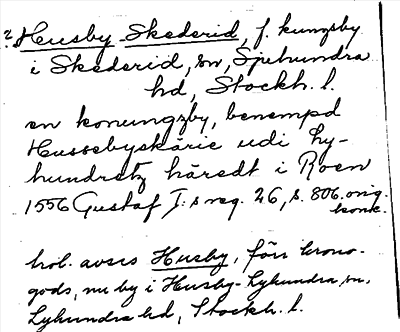 ? Husby Skederid, f. kungsby
i Skederid, sn, Sjuhundra
hd, Stockh. l.
en konungzby, benempd
Hussebyskärie udi hy-
hundretz häredt i Roen
1556 Gustaf I:s reg. 26, s. 806. orig.
konc.
trol. avses Husby, förr krono-
gods, nu by i Husby-Lyhundra sn,
Lyhundra hd, Stockh. l.